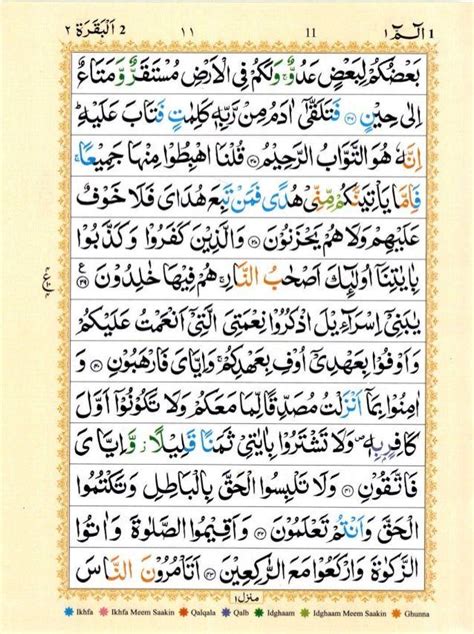 البقرة ٢ 2 ١١ 11 الٓمّٓ ١ 1
بَعْضُكُمْ لِبَعْضٍ عَدُوٌّ ۚ وَلَكُمْ فِي الْاَرْضِ مُسْتَقَرٌّ وَّمَتَاعٌ
اِلٰى حِيْنٍ ﴿۳۶﴾ فَتَلَقّٰٓى اٰدَمُ مِنْ رَّبِّهٖ كَلِمٰتٍ فَتَابَ عَلَيْهِ ؕ
اِنَّهٗ هُوَ التَّوَّابُ الرَّحِيْمُ ﴿۳۷﴾ قُلْنَا اهْبِطُوْا مِنْهَا جَمِيْعًا ۚ
فَاِمَّا يَاْتِيَنَّكُمْ مِّنِّيْ هُدًى فَمَنْ تَبِعَ هُدَايَ فَلَا خَوْفٌ
عَلَيْهِمْ وَلَا هُمْ يَحْزَنُوْنَ ﴿۳۸﴾ وَالَّذِيْنَ كَفَرُوْا وَكَذَّبُوْا
بِاٰيٰتِنَآ اُولٰٓئِكَ اَصْحٰبُ النَّارِ ۚ هُمْ فِيْهَا خٰلِدُوْنَ ﴿۳۹﴾
يٰبَنِيْٓ اِسْرَآءِيْلَ اذْكُرُوْا نِعْمَتِيَ الَّتِيْٓ اَنْعَمْتُ عَلَيْكُمْ
وَاَوْفُوْا بِعَهْدِيْٓ اُوْفِ بِعَهْدِكُمْ ۚ وَاِيَّايَ فَارْهَبُوْنِ ﴿۴۰﴾ وَ
اٰمِنُوْا بِمَآ اَنْزَلْتُ مُصَدِّقًا لِّمَا مَعَكُمْ وَلَا تَكُوْنُوْٓا اَوَّلَ
كَافِرٍۭ بِهٖ ۪ وَلَا تَشْتَرُوْا بِاٰيٰتِيْ ثَمَنًا قَلِيْلًا ؗ وَّاِيَّايَ
فَاتَّقُوْنِ ﴿۴۱﴾ وَلَا تَلْبِسُوا الْحَقَّ بِالْبَاطِلِ وَتَكْتُمُوا
الْحَقَّ وَاَنْتُمْ تَعْلَمُوْنَ ﴿۴۲﴾ وَاَقِيْمُوا الصَّلٰوةَ وَاٰتُوا
الزَّكٰوةَ وَارْكَعُوْا مَعَ الرّٰكِعِيْنَ ﴿۴۳﴾ اَتَاْمُرُوْنَ النَّاسَ
منزل ١
Ikhfa Ikhfa Meem Saakin Qalqala Qalb Idghaam Idghaam Meem Saakin Ghunna